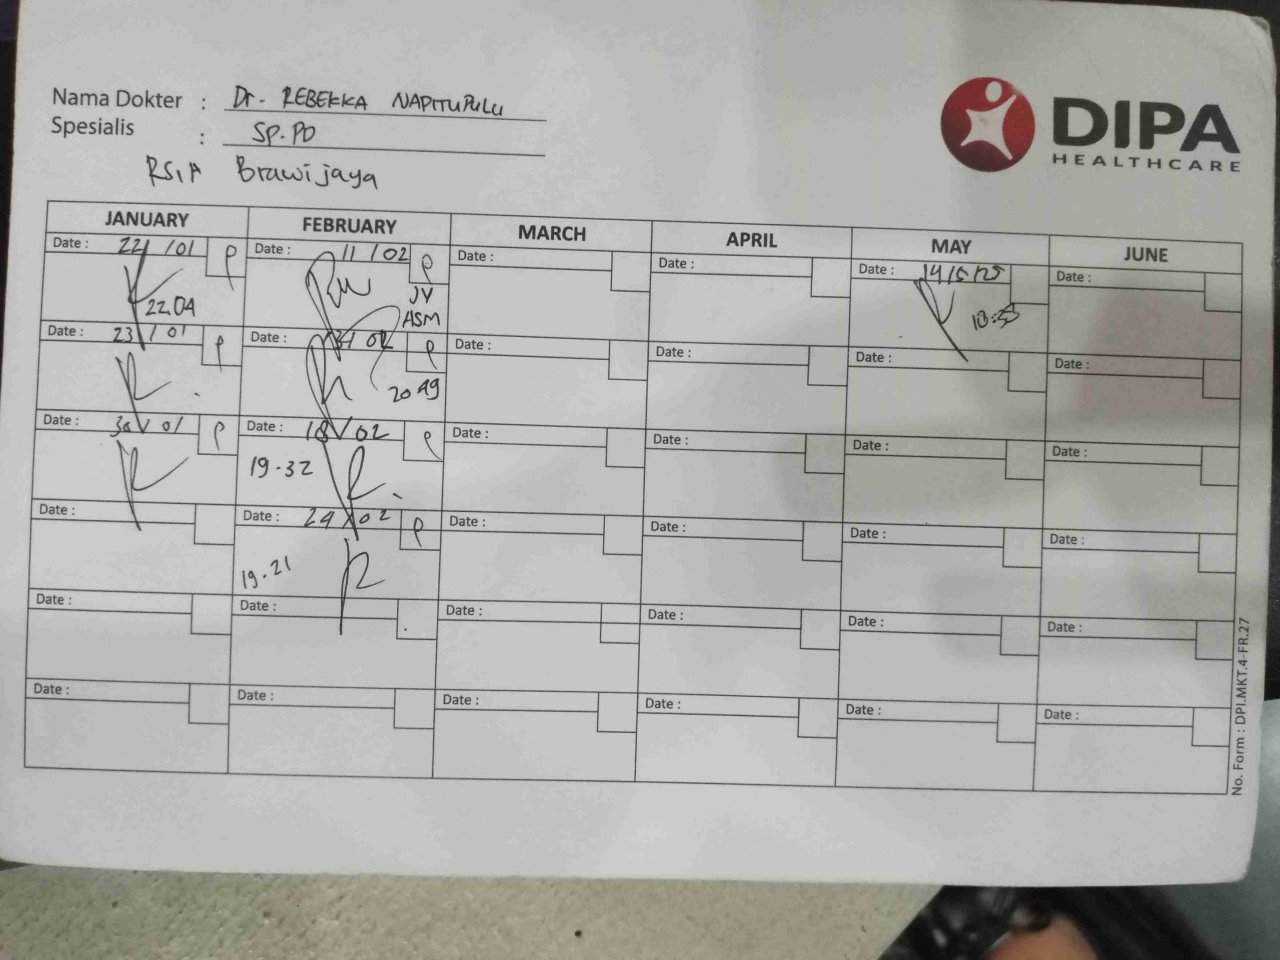 Nama Dokter : Dr. REBEKKA NAPITUPULU
Spesialis : SP.PD
RSIA Brawijaya
DIPA
HEALTHCARE
JANUARY FEBRUARY MARCH APRIL MAY JUNE
Date : 22/01 P Date : 11/02 P Date : Date : Date : 14/5/25 Date :
22.04 JV ASM
Date : 23/01 P Date : 02 P Date : Date : Date : Date :
20.49
Date : 30/01 P Date : 18/02 P Date : Date : Date : Date :
19-32
Date : Date : 24/02 P Date : Date : Date : Date :
19-21
Date : Date : Date : Date : Date : Date :
Date : Date : Date : Date : Date : Date :
No. Form : DPI.MKT.4-FR.27